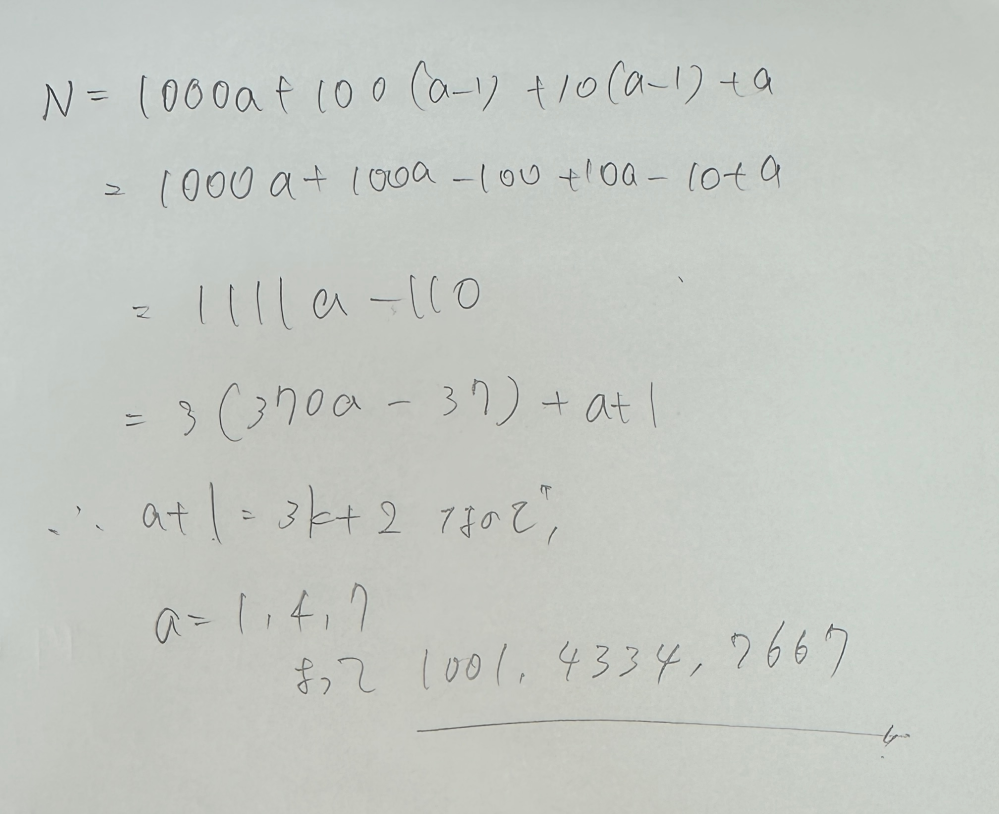 N = 1000a + 100(a-1) + 10(a-1) + a
= 1000a + 100a - 100 + 10a - 10 + a
= 1111a - 110
= 3(370a - 37) + a + 1
∴ a + 1 = 3k + 2 なので,
a = 1, 4, 7
よって 1001, 4334, 7667